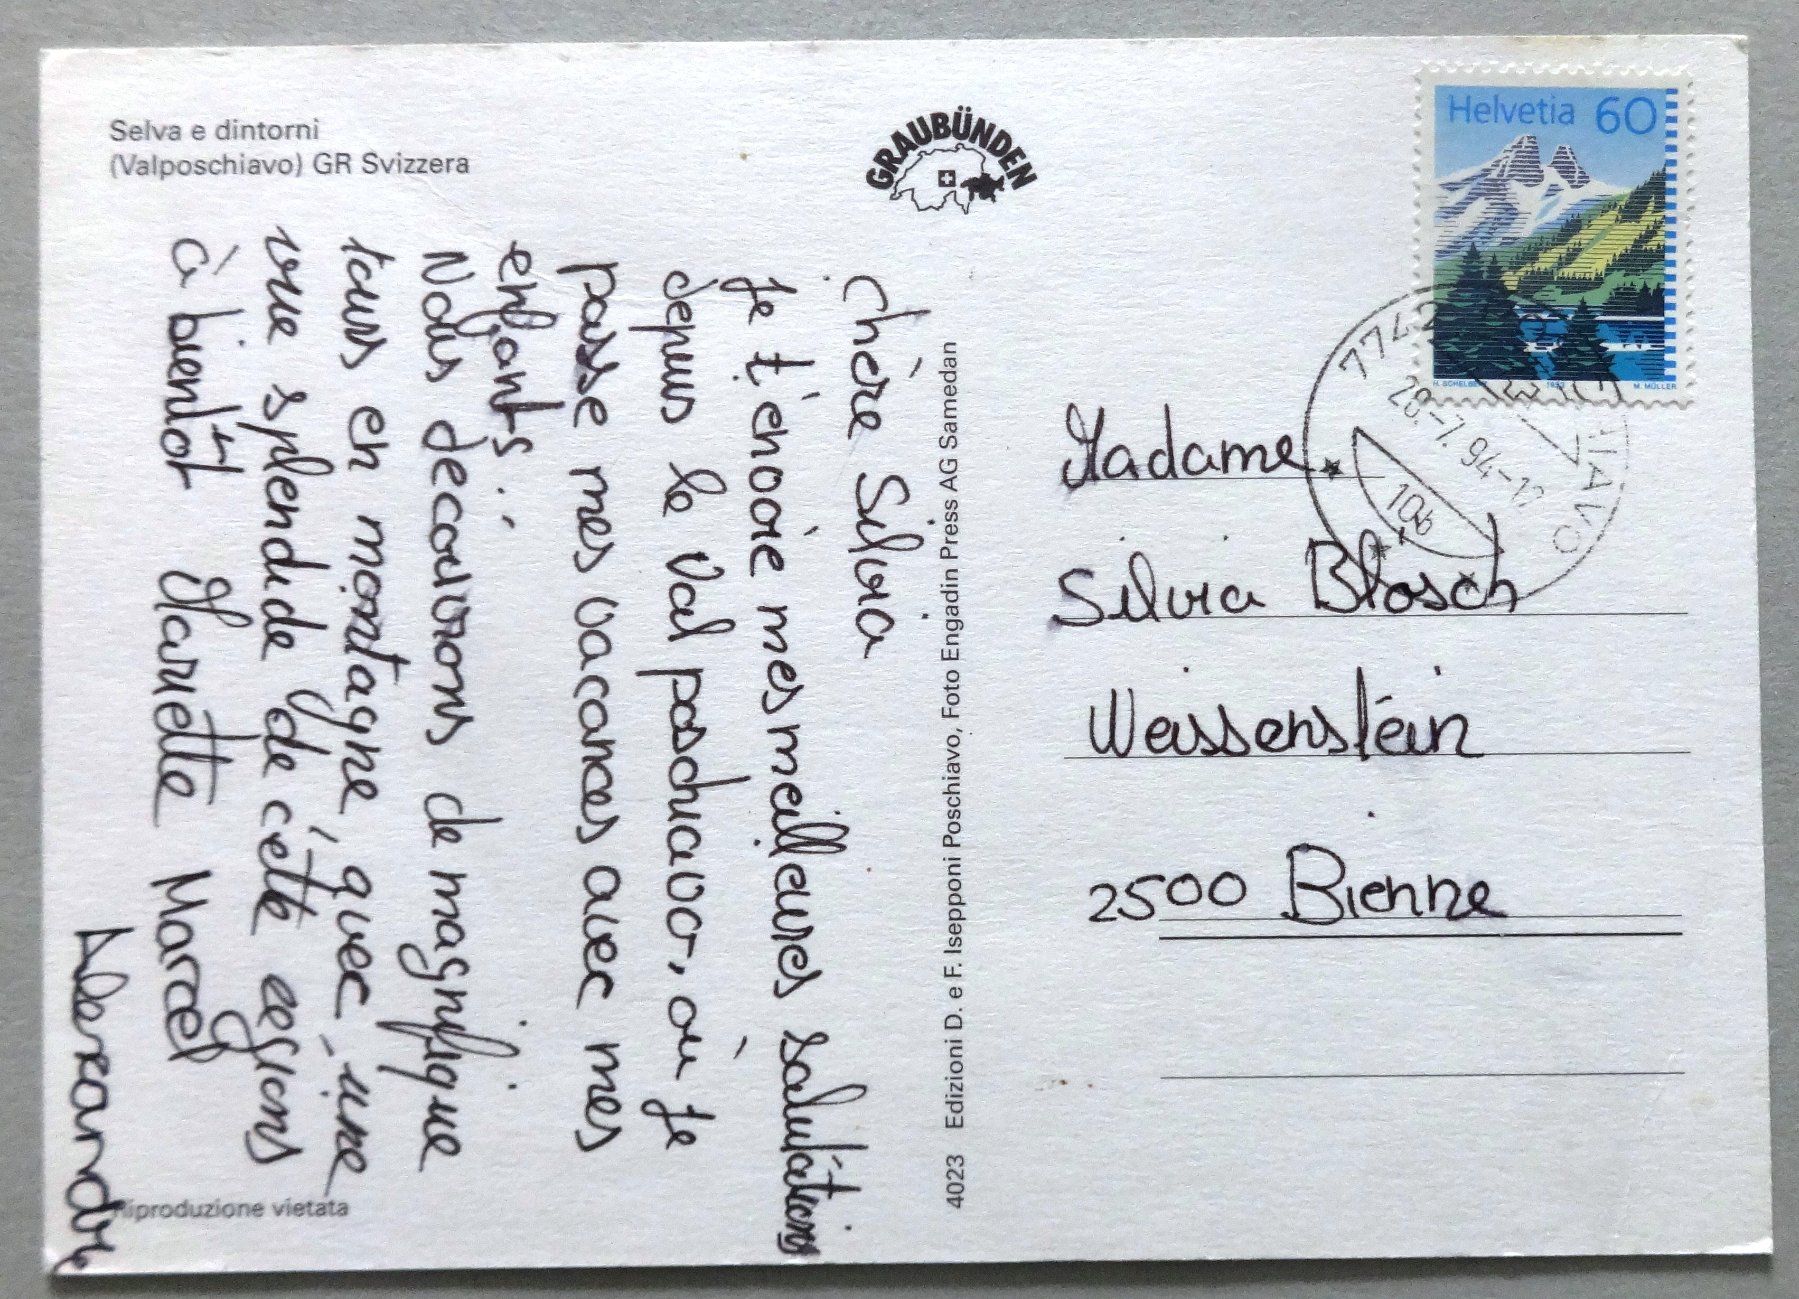 Selva e dintorni
(Valposchiavo) GR Svizzera
GRAUBÜNDEN
Helvetia 60
H. SCHELBERT 1993 M. MÜLLER
7742
28-7.94-12
10b
Chère Silvia
Je t'envoie mes meilleures salutations
depuis le Val poschiavo, où je
passe mes vacances avec mes
enfants.
Nous decouvrons de magnifique
tours en montagne, avec une
vue splendide de cette regions
à bientôt Mariette Marcel
Alexandre
4023 Edizioni D. e F. Isepponi Poschiavo, Foto Engadin Press AG Samedan
Madame
Silvia Blösch
Weissenstein
2500 Bienne
Riproduzione vietata